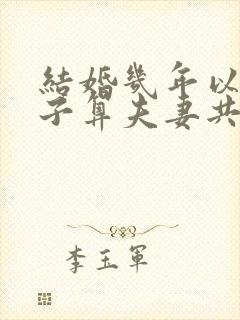 結婚幾年以
子算夫妻共
李玉軍